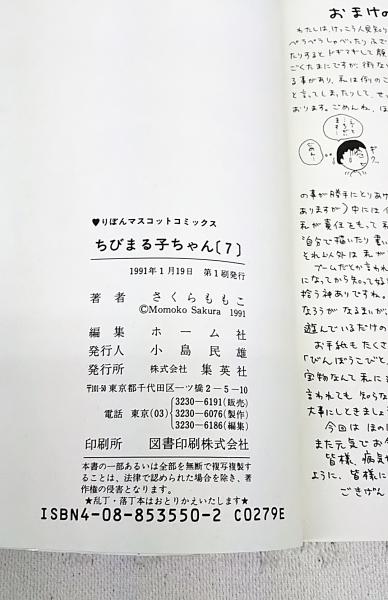 ♥りぼんマスコットコミックス
ちびまる子ちゃん〔7〕
1991年1月19日 第1刷発行
著者 さくらももこ
©Momoko Sakura 1991
編集 ホーム社
発行人 小島民雄
発行所 株式会社 集英社
〒101-50 東京都千代田区一ツ橋2-5-10
3230-6191(販売)
電話 東京(03) 3230-6076(製作)
3230-6186(編集)
印刷所 図書印刷株式会社
本書の一部あるいは全部を無断で複写複製す
ることは、法律で認められた場合を除き、著
作権の侵害となります。
★乱丁・落丁本はおとりかえいたします★
ISBN4-08-853550-2 C0279E
おまけの
わたしは、けっこう人見知り
ぺらぺらしゃべったりふざ
たりするとドギマギして顔
ごくたまにですが、街な
る事があり、私は例のご
と言ってしまったりして、せっ
おります。ごめんね、ほ
ギクッ
の事が勝手にとりあげ
ありますが)中には
私が責任をもって私
自分で描いたり書い
それ以外は私が
ブームだとか言われ
になってから知って好
拾う神ありですね。
なろうがなるまいが、
遊んでいるだけの
お手紙もたくさ
「びんぼうこびと」
宝物なんて私に
言われても知らな
大事にしときましょ
今回はほのぼ
また元気でお
皆様、病気や
ように、皆様に
ごきげん